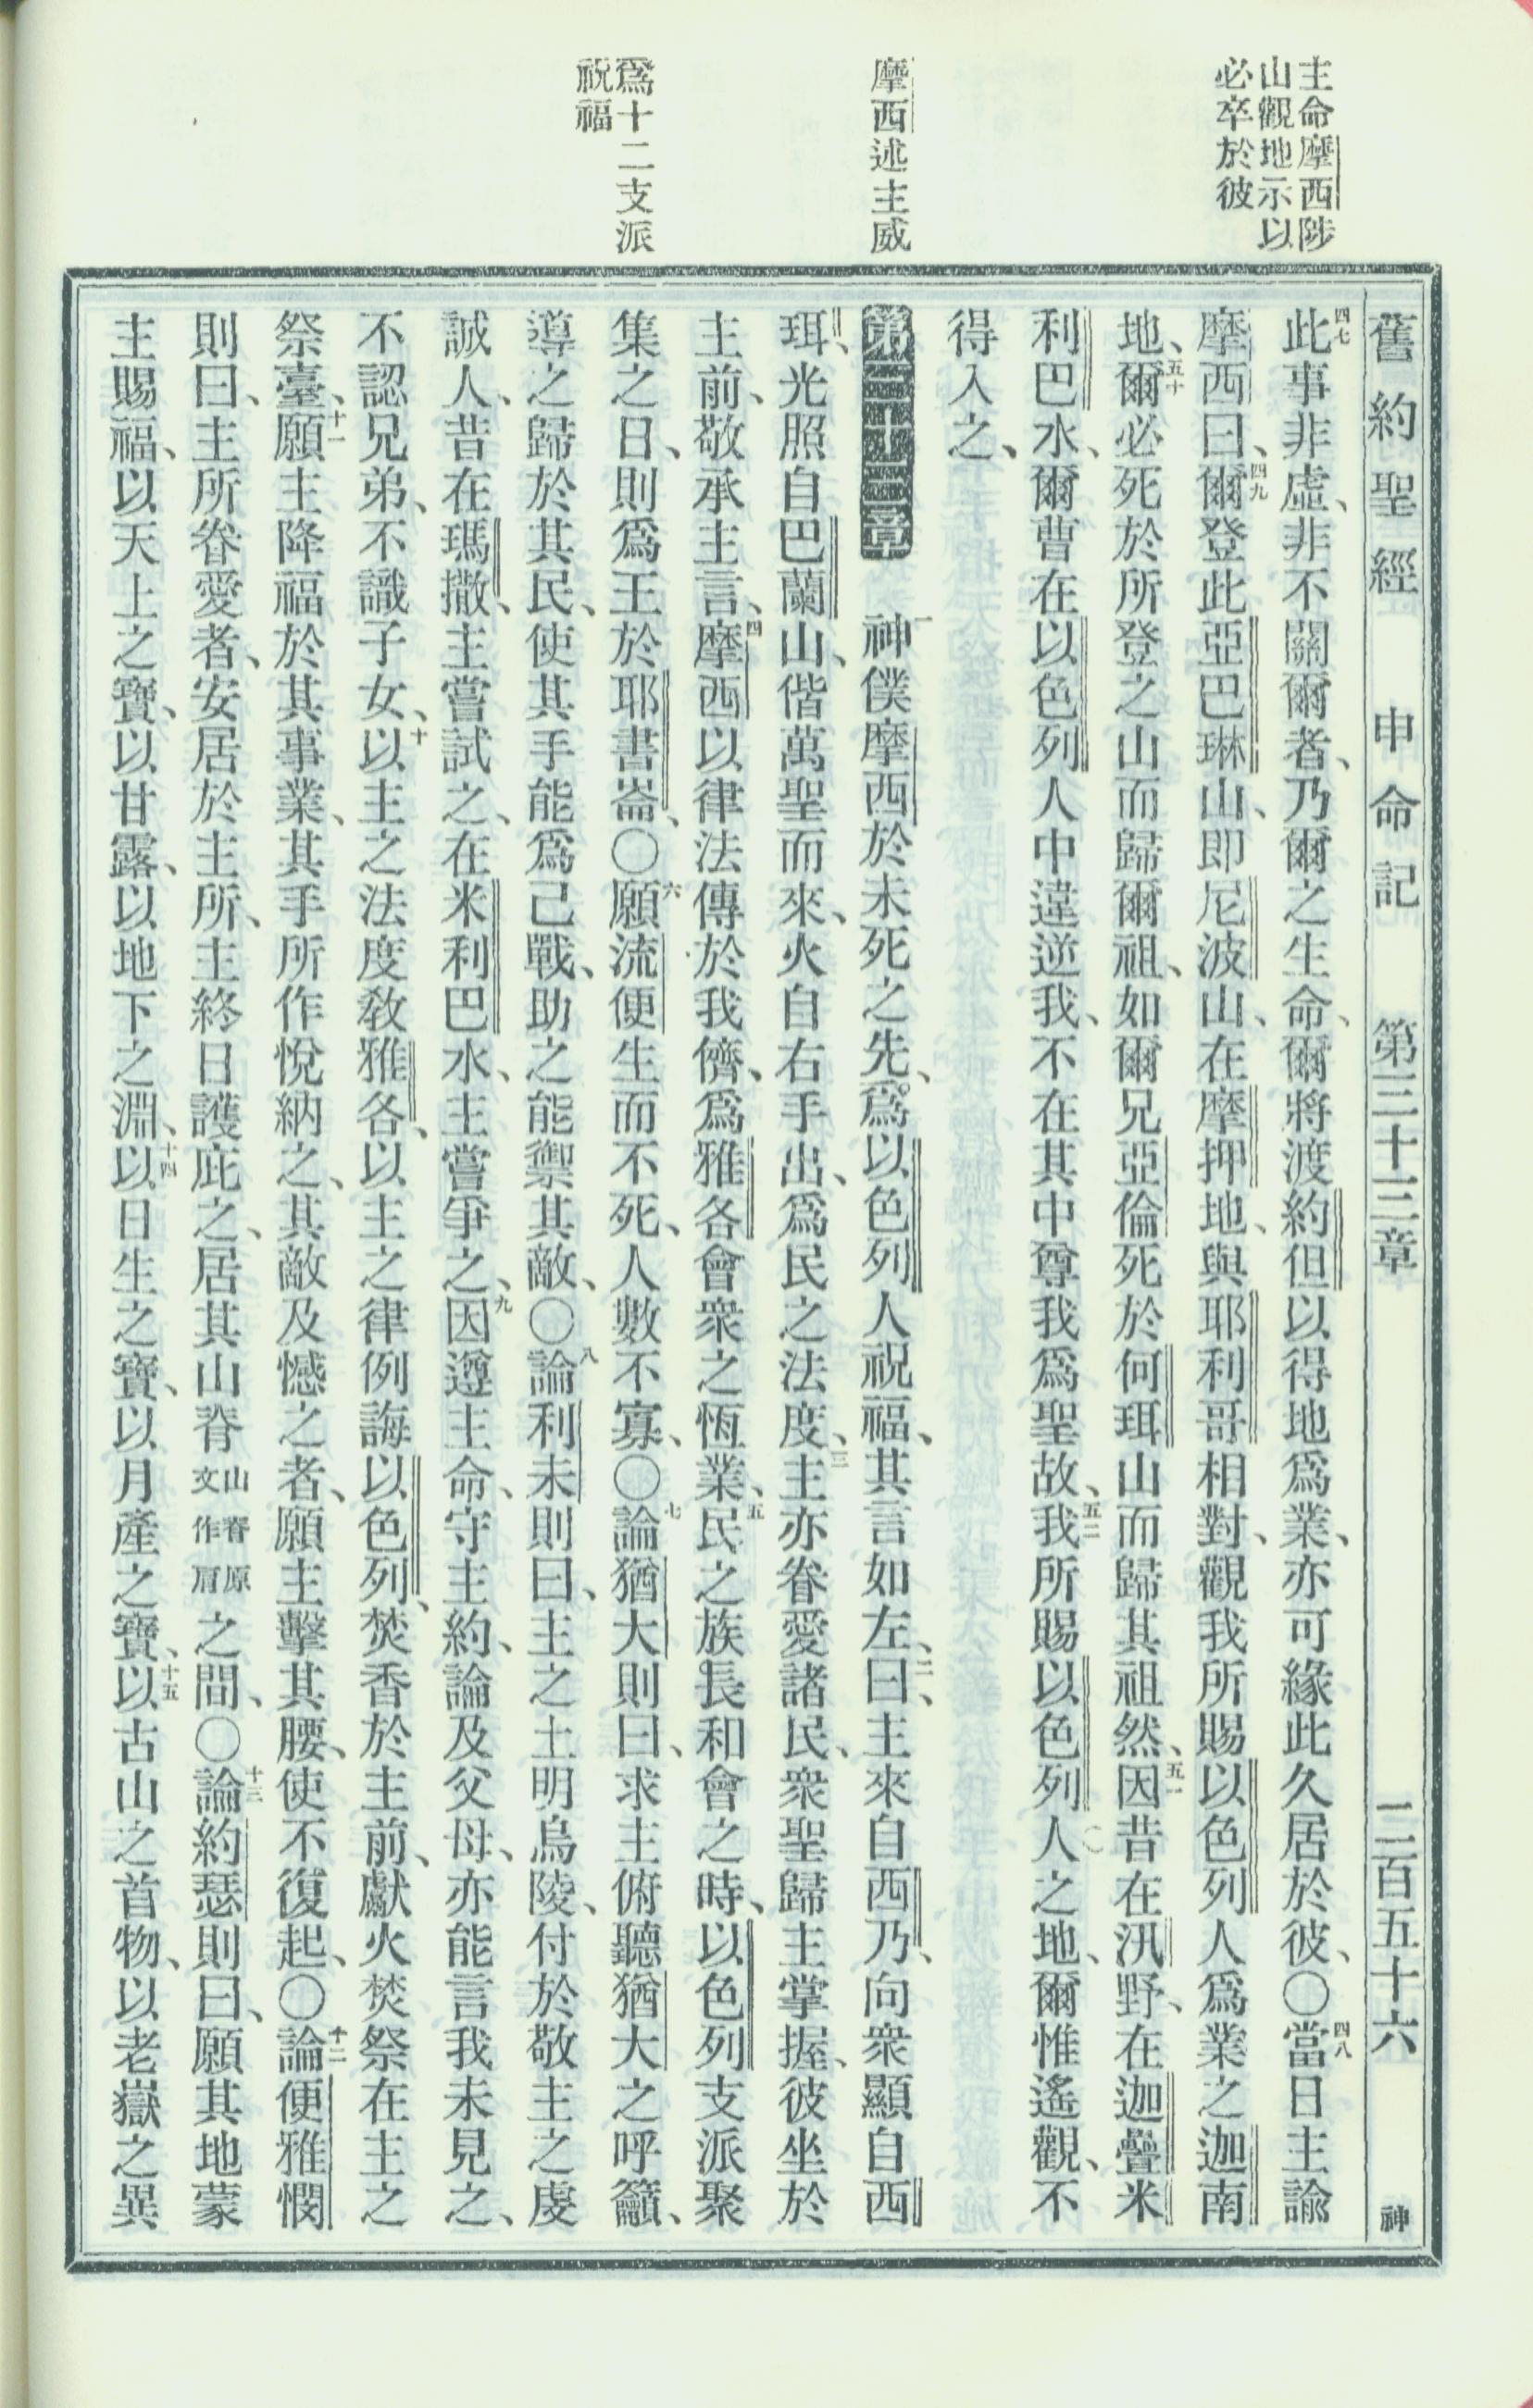 舊約聖經 申命記 第三十三章 二百五十六 神
主命摩西陟
山觀地示以
必卒於彼
摩西述主威
爲十二支派
祝福
四七此事非虛、非不關爾者、乃爾之生命、爾將渡約但以得地爲業、亦可緣此久居於彼、〇四八當日主諭
摩西曰、四九爾登此亞巴琳山、即尼波山、在摩押地、與耶利哥相對、觀我所賜以色列人爲業之迦南
地、五十爾必死於所登之山而歸爾祖、如爾兄亞倫死於何珥山而歸其祖然、五一因昔在汛野、在迦疊米
利巴水、爾曹在以色列人中違逆我、不在其中尊我爲聖故、五二我所賜以色列人之地、爾惟遙觀、不
得入之、
第三十三章 一神僕摩西於未死之先、爲以色列人祝福、其言如左、二曰、主來自西乃、向衆顯自西
珥、光照自巴蘭山、偕萬聖而來、火自右手出、爲民之法度、三主亦眷愛諸民、衆聖歸主掌握、彼坐於
主前、敬承主言、四摩西以律法傳於我儕、爲雅各會衆之恆業、五民之族長和會之時、以色列支派聚
集之日、則爲王於耶書崙、〇六願流便生而不死、人數不寡、〇七論猶大則曰、求主俯聽猶大之呼籲、
導之歸於其民、使其手能爲己戰、助之能禦其敵、〇八論利未則曰、主之土明烏陵、付於敬主之虔
誠人、昔在瑪撒、主嘗試之、在米利巴水、主嘗爭之、九因遵主命、守主約、論及父母、亦能言我未見之、
不認兄弟、不識子女、十以主之法度敎雅各、以主之律例誨以色列、焚香於主前、獻火焚祭在主之
祭臺、十一願主降福於其事業、其手所作悅納之、其敵及憾之者、願主擊其腰、使不復起、〇十二論便雅憫
則曰、主所眷愛者、安居於主所、主終日護庇之、居其山脊山脊原文作肩之間、〇十三論約瑟則曰、願其地蒙
主賜福、以天上之寶、以甘露、以地下之淵、十四以日生之寶、以月產之寶、十五以古山之首物、以老嶽之異